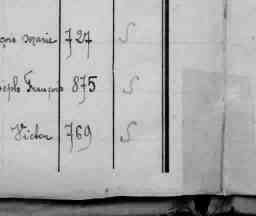 çois Marie 727 S
oseph François 875 S
Victor 769 S